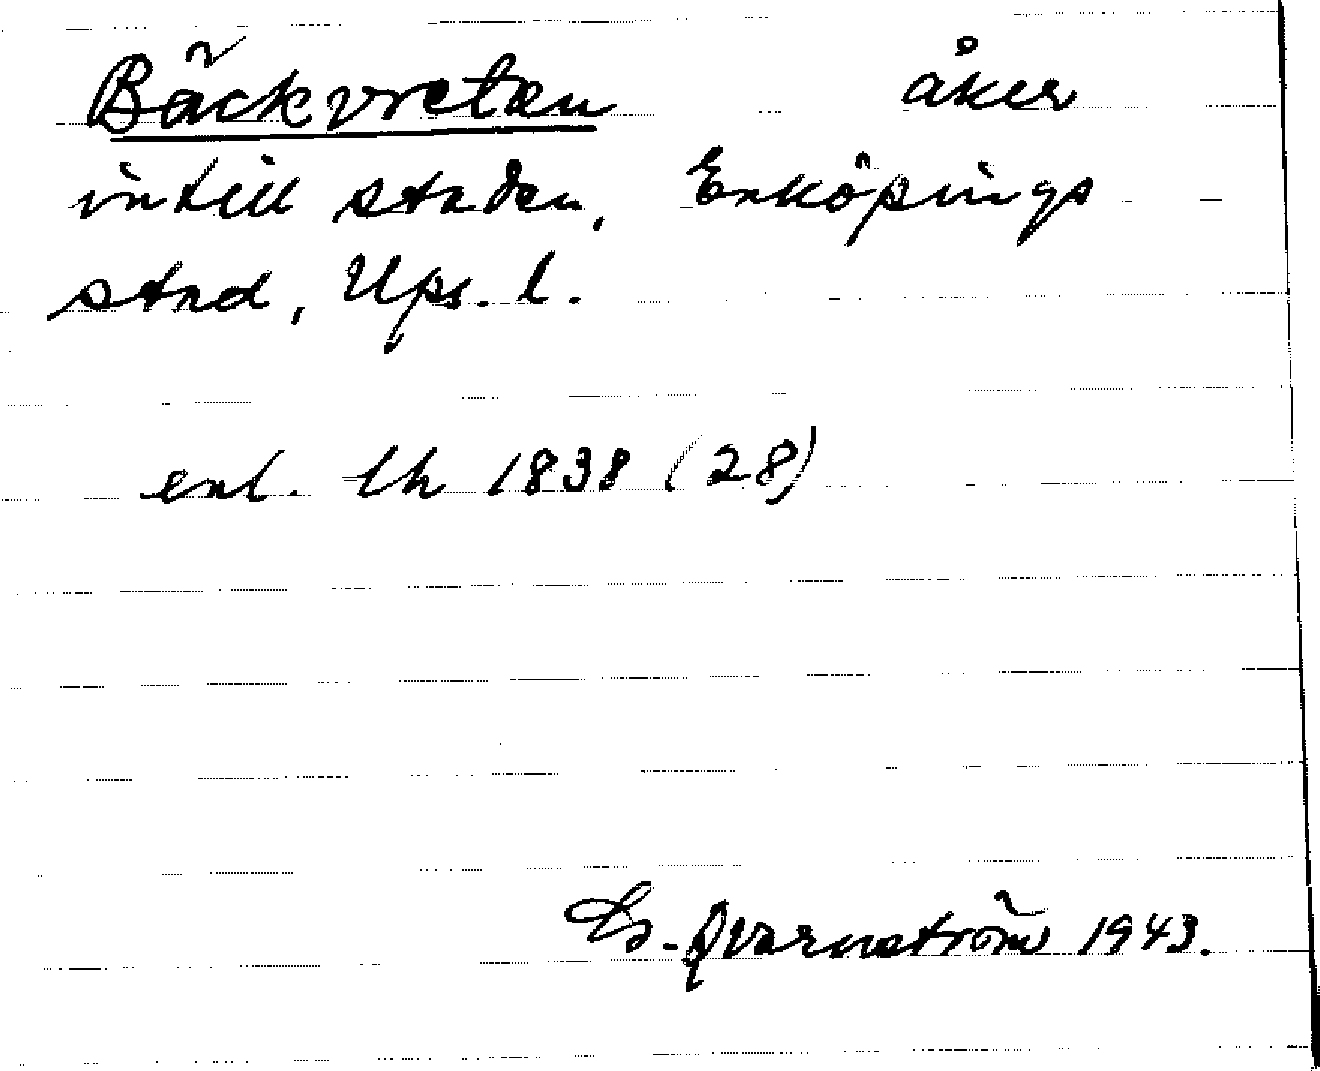 Bäckvreten åker
intill staden, Enköpings
stad, Ups. l.
enl. lh 1838 (28)
G. Qvarnström 1943.